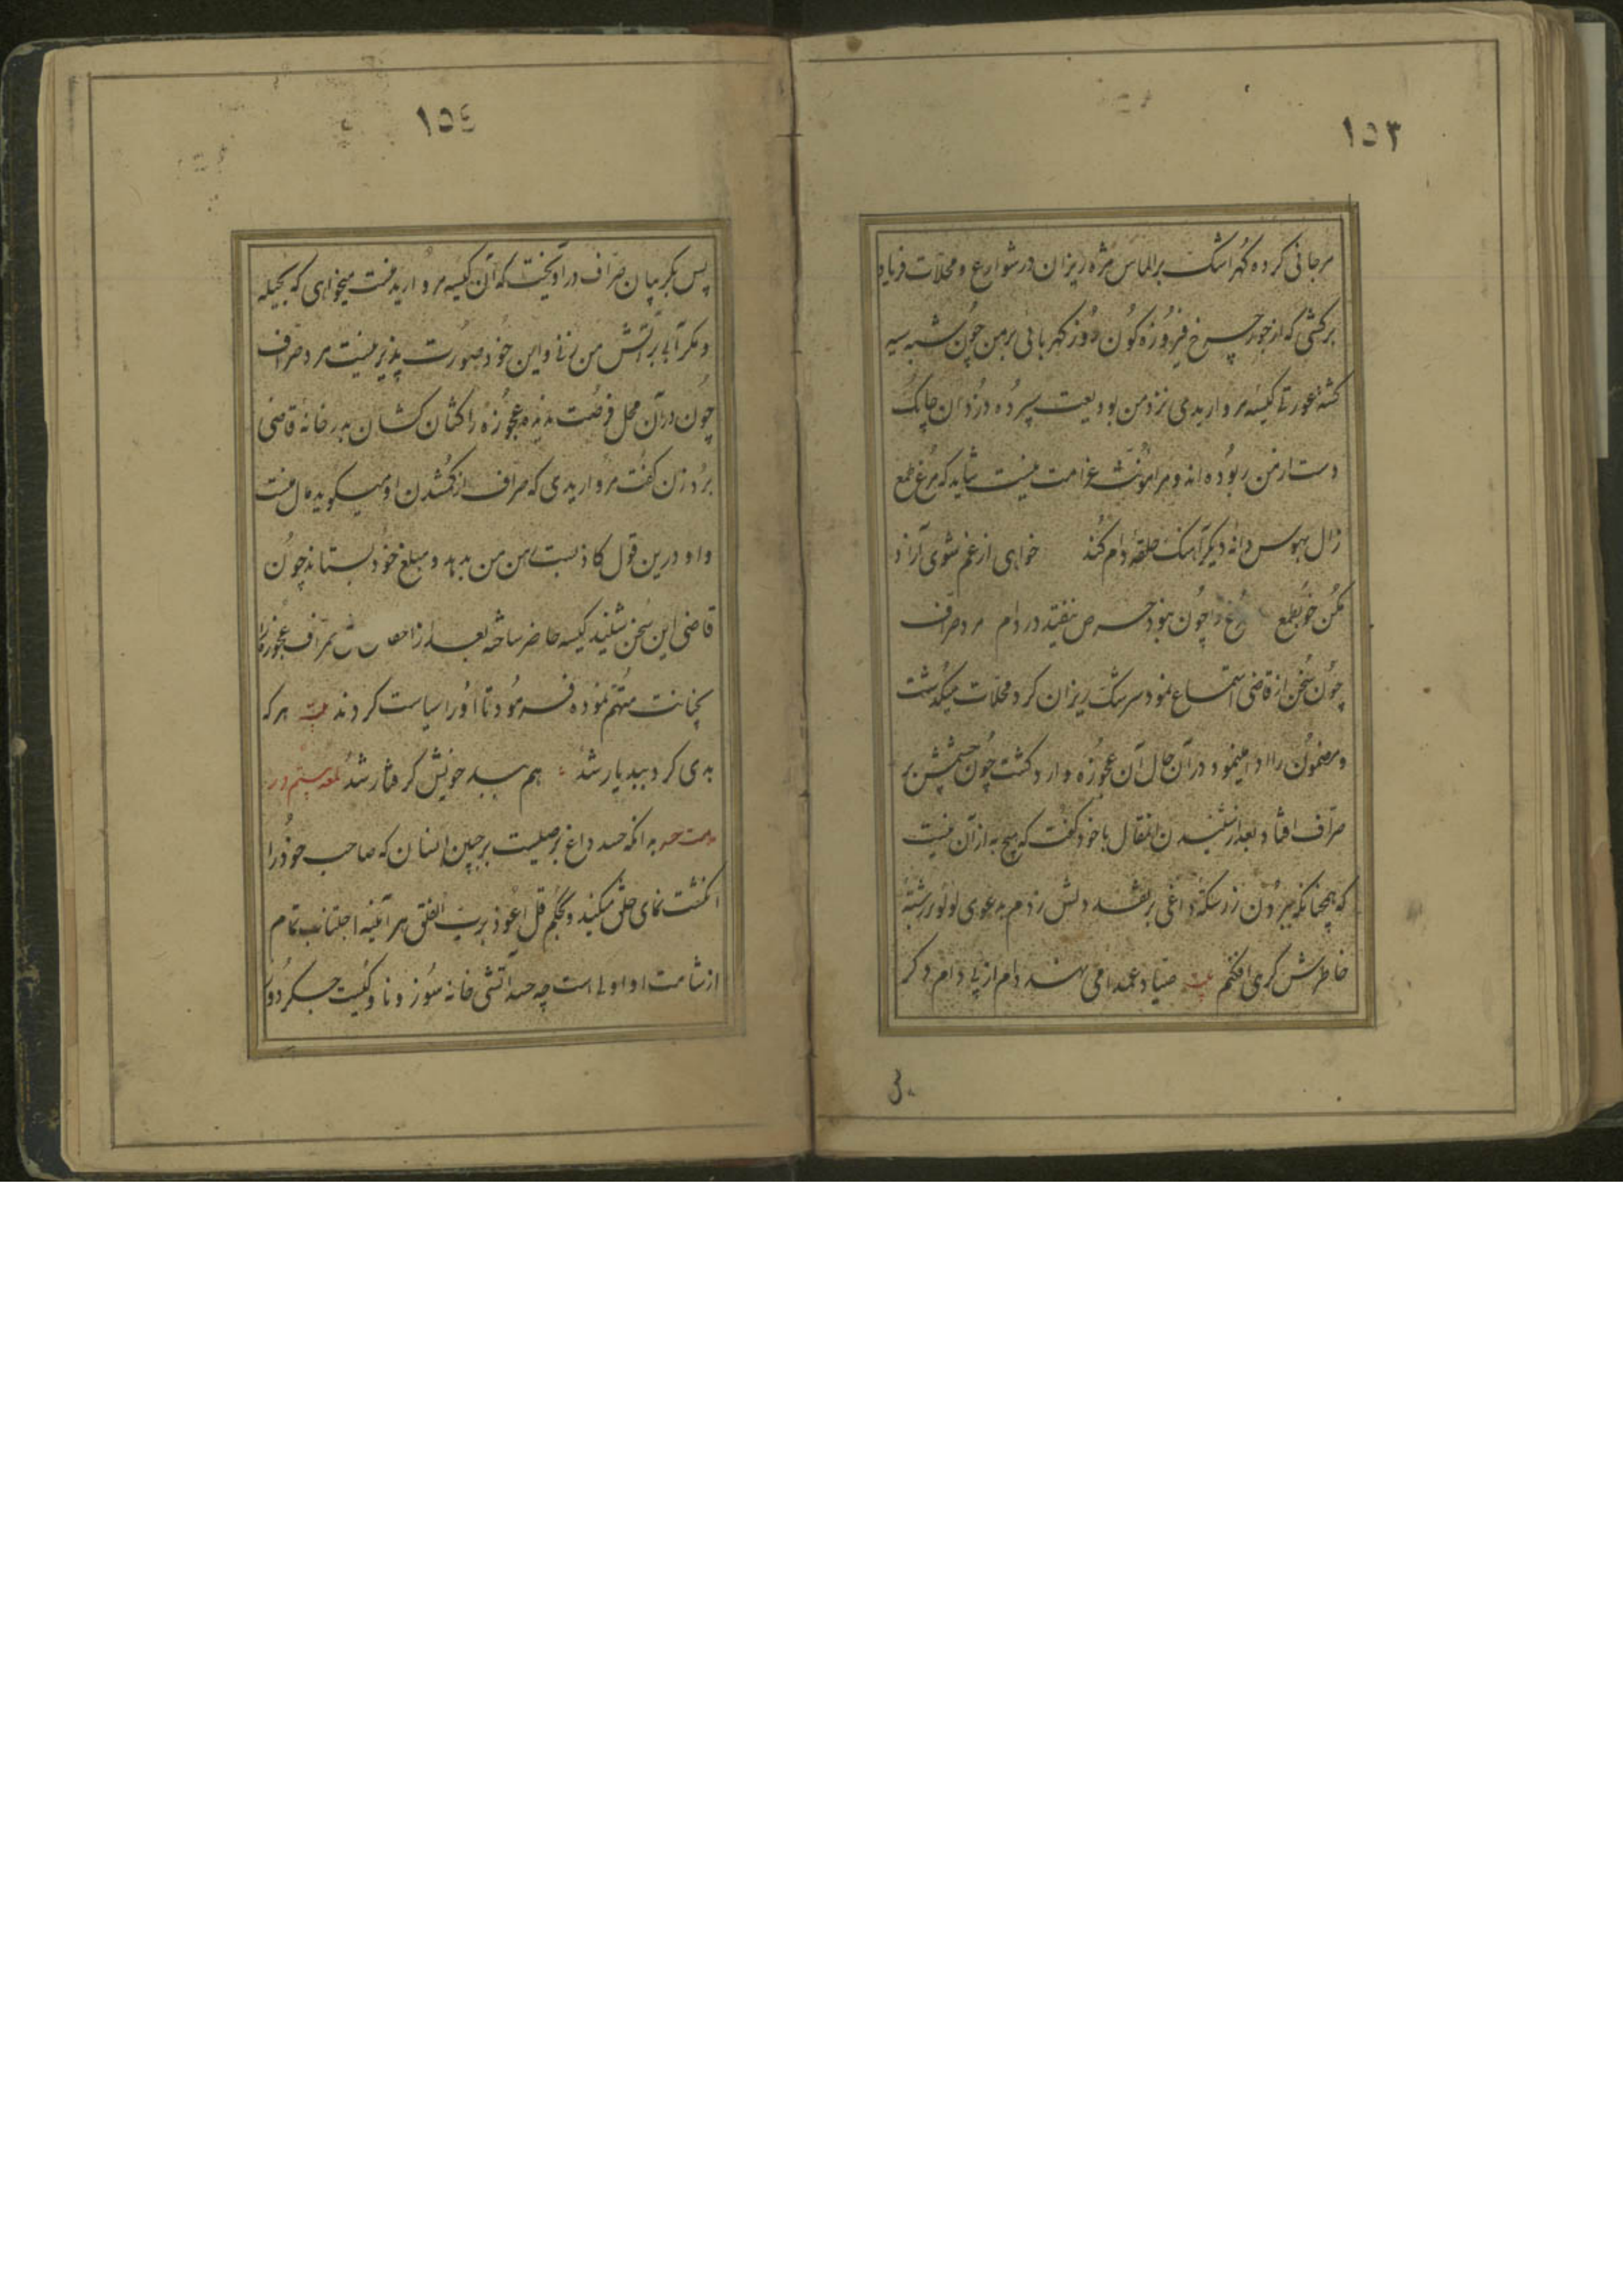 ١٥٣
مرجانی کرده گهر اشک بر الماس مژه ریزان در شوارع و محلات فریاد
برکشی که از جور چرخ فیروزه کون روز کهربائی بر من چون شبه سیه
کشته عورتا کیسه مرواریدی نزد من بودیعت سپرده دزدان چابک
دست از من ربوده اند و مرا مؤنت غرامت نیست شاید که مرغ طمع
زال بهوس دانه دیگر آهنک حلقه دام کند خواهی از غم شوی آزاد
مکن خو بطمع مرغ را چون نبود حرص نیفتد در دام مرد صراف
چون سخن از قاضی استماع نمود سرشک ریزان کرد محلات میکذشت
و مضمون را ادا مینمود در آن حال آن عجوزه وارد کشت چون چشمش بر
صراف افتاد بعد از شنیدن انمقال با خود کفت که هیچ به از آن نیست
که همچنانکه ببردن زر سکه داغی بر نقد دلش زدم بدعوی لولو رشته
خاطرش کرهی افکنم بیت صیاد عمدا می نهد دام از پی دام دکر
١٥٤
پس بکریبان صراف در آویخت که آن کیسه مروارید مفت میخواهی که بحیله
و مکر آبی بر آتش من زنی و این خود صورت پذیر نیست مرد صراف
چون در آن محل فرصت دید عجوزه را کشان کشان بدر خانه قاضی
برد زن کفت مرواریدی که صراف از کمشدن او میکوید مال منست
و او درین قول کاذبست بمن بدهد و مبلغ خود بستاند چون
قاضی این سخن شنید کیسه حاضر ساخته بعد از صراف عجوزه را
بخیانت متهم نموده فرمود تا او را سیاست کردند بیت هر که
بدی کرد ببد یار شد هم ببد خویش کرفتار شد بیستم در
مذمت حسد بدانکه حسد داغ برصیست بر جبین انسان که صاحب خود را
انکشت نمای خلق میکند و بحکم قل اعوذ برب الفلق هر آینه اجتناب تمام
از شامت او اولی است چه حسد آتشی خانه سوز و ناوکیست جکر دوز